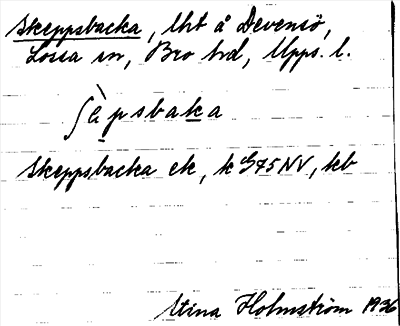 Skeppsbacka, lht å Devensö,
Lossa sn, Bro hd, Upps. l.
ʃɛ̀psbaka
Skeppsbacka ek, k G75NV, kb
Stina Holmström 1936